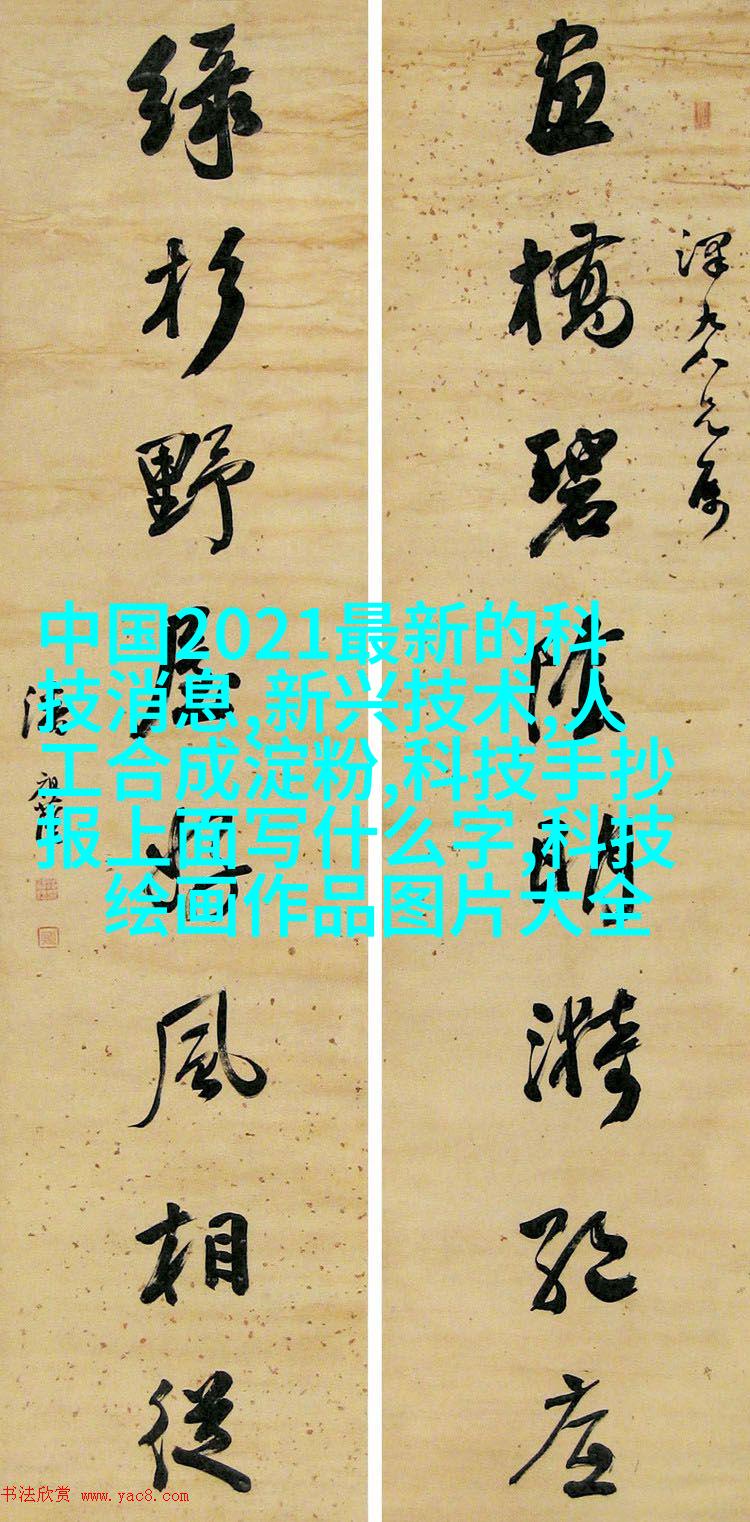 畫橋碧陰明漪絕底
綠杉野風相從
中国2021最新的科
技消息,新兴技术,人
工合成淀粉,科技手抄
报上面写什么字,科技
绘画作品图片大全
书法欣赏 www.yac8.com